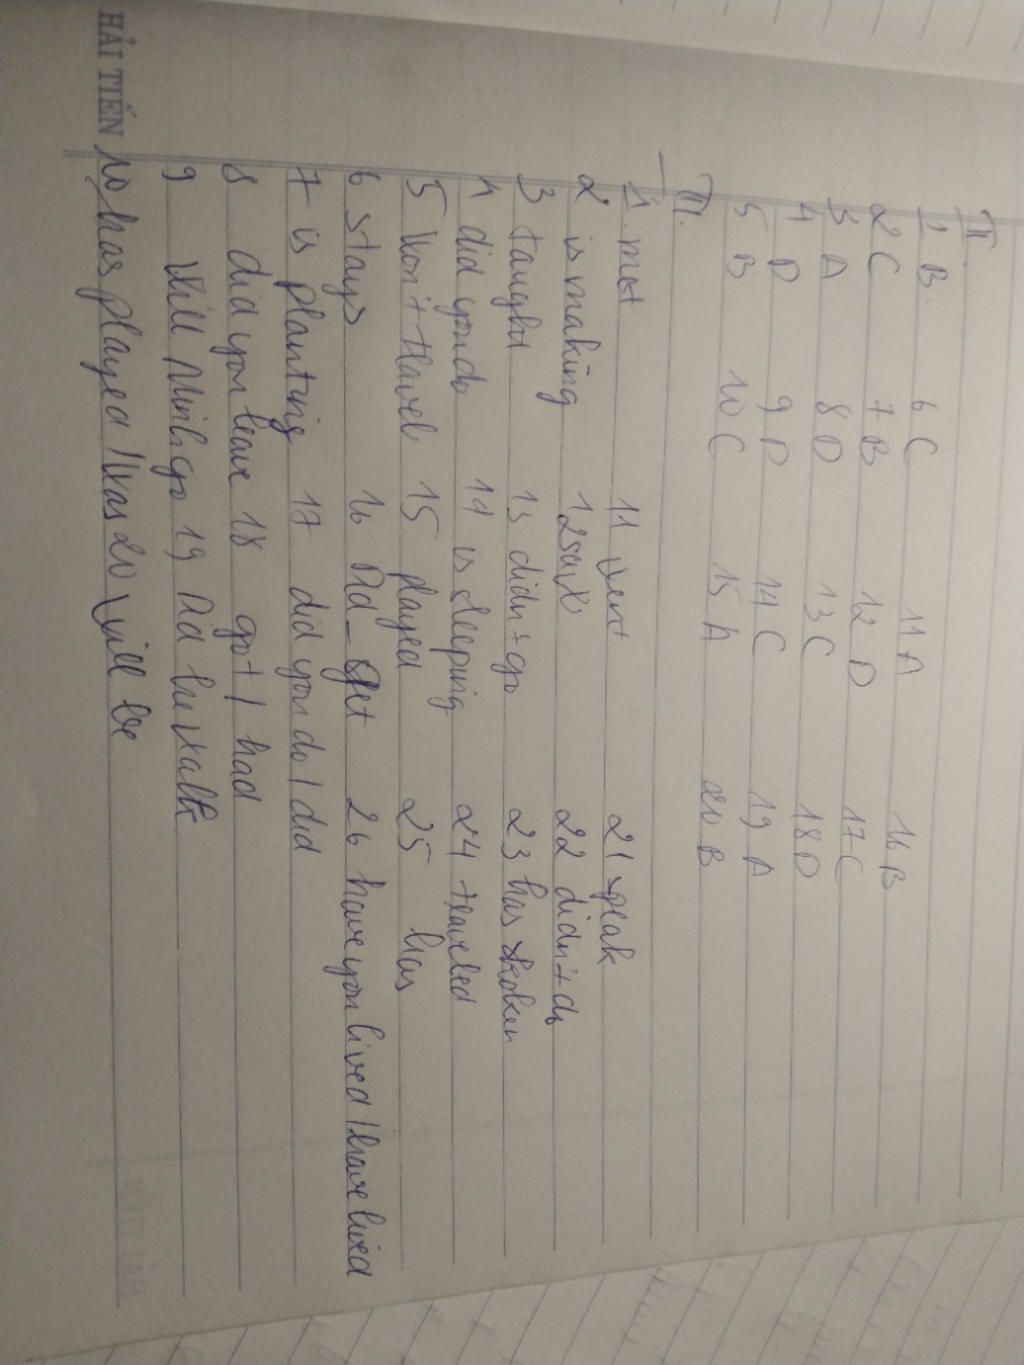 II
1 B. 6 C 11 A 16 B
2 C 7 B 12 D 17 C
3 A 8 D 13 C 18 D
4 D 9 D 14 C 19 A
5 B 10 C 15 A 20 B
III.
1. met 11 went 21 speak
2 is making 12 saw 22 didn't do
3 taught 13 didn't go 23 has broken
4 did you do 14 is sleeping 24 traveled
5 won't travel 15 played 25 has
6 stays 16 Did _ get 26 have you lived / have lived
7 is planting 17 did you do / did
8 did you leave 18 got / had
9 Will Minh go 19 Did he walk
10 has played / was 20 will be
HẢI TIẾN